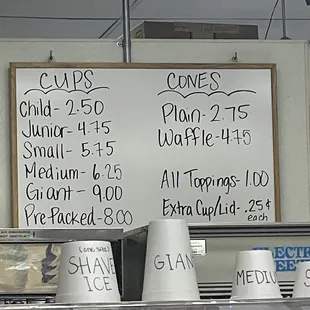 CUPS
Child- 2.50
Junior- 4.75
Small- 5.75
Medium- 6.25
Giant- 9.00
Pre Packed- 8.00
CONES
Plain- 2.75
Waffle- 4.75
All Toppings- 1.00
Extra Cup/Lid- .25¢
each
(one size)
SHAVE
ICE
GIAN
MEDIU
S